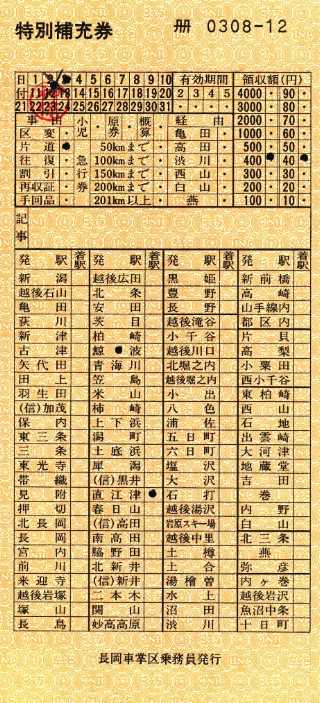 特別補充券
冊 0308-12
日 1 4 5 6 7 8 9 10 有効期間 領収額(円)
付 11 12 14 15 16 17 18 19 20 2 3 4 5 4000・90
21 22 23 24 25 26 27 28 29 30 31 3000・80
事由 小児 原券 概算 発駅 2000・70
区変・ 亀田 1000・60
片道 50kmまで・ 高田 500・50
往復・ 急行券 100kmまで・ 渋川 400 40
割引・ 150kmまで・ 西山 300・30
再収証・ 200kmまで・ 白山 200・20
手回品・ 201km以上・ 燕 100・10
記事
発駅 着駅 発駅 着駅 発駅 着駅 発駅 着駅
新潟 越後広田 黒姫 新前橋
越後石山 北条 豊野 高崎
亀田 安田 長野 山手線内
荻川 茨目 越後滝谷 都区内
新津 柏崎 小千谷 片貝
古津 鯨波 越後川口 高梨
矢代田 青海川 北堀之内 小粟田
田上 笠島 越後堀之内 西小千谷
羽生田 米山 小出 東柏崎
(信)加茂 柿崎 八色 西山
保内 上下浜 浦佐 石地
東三条 潟町 五日町 出雲崎
三条 土底浜 六日町 大河津
東光寺 犀潟 塩沢 地蔵堂
帯織 (信)黒井 大沢 吉田
見附 直江津 石打 巻
押切 春日山 越後湯沢 内野
北長岡 (信)高田 岩原スキー場 白山
長岡 南高田 越後中里 北三条
宮内 脇野田 土樽 燕
前川 北新井 土合 弥彦
来迎寺 (信)新井 湯檜曽 内ヶ巻
越後岩塚 二本木 水上 越後岩沢
塚山 関山 沼田 魚沼中条
長鳥 妙高高原 渋川 十日町
長岡車掌区乗務員発行